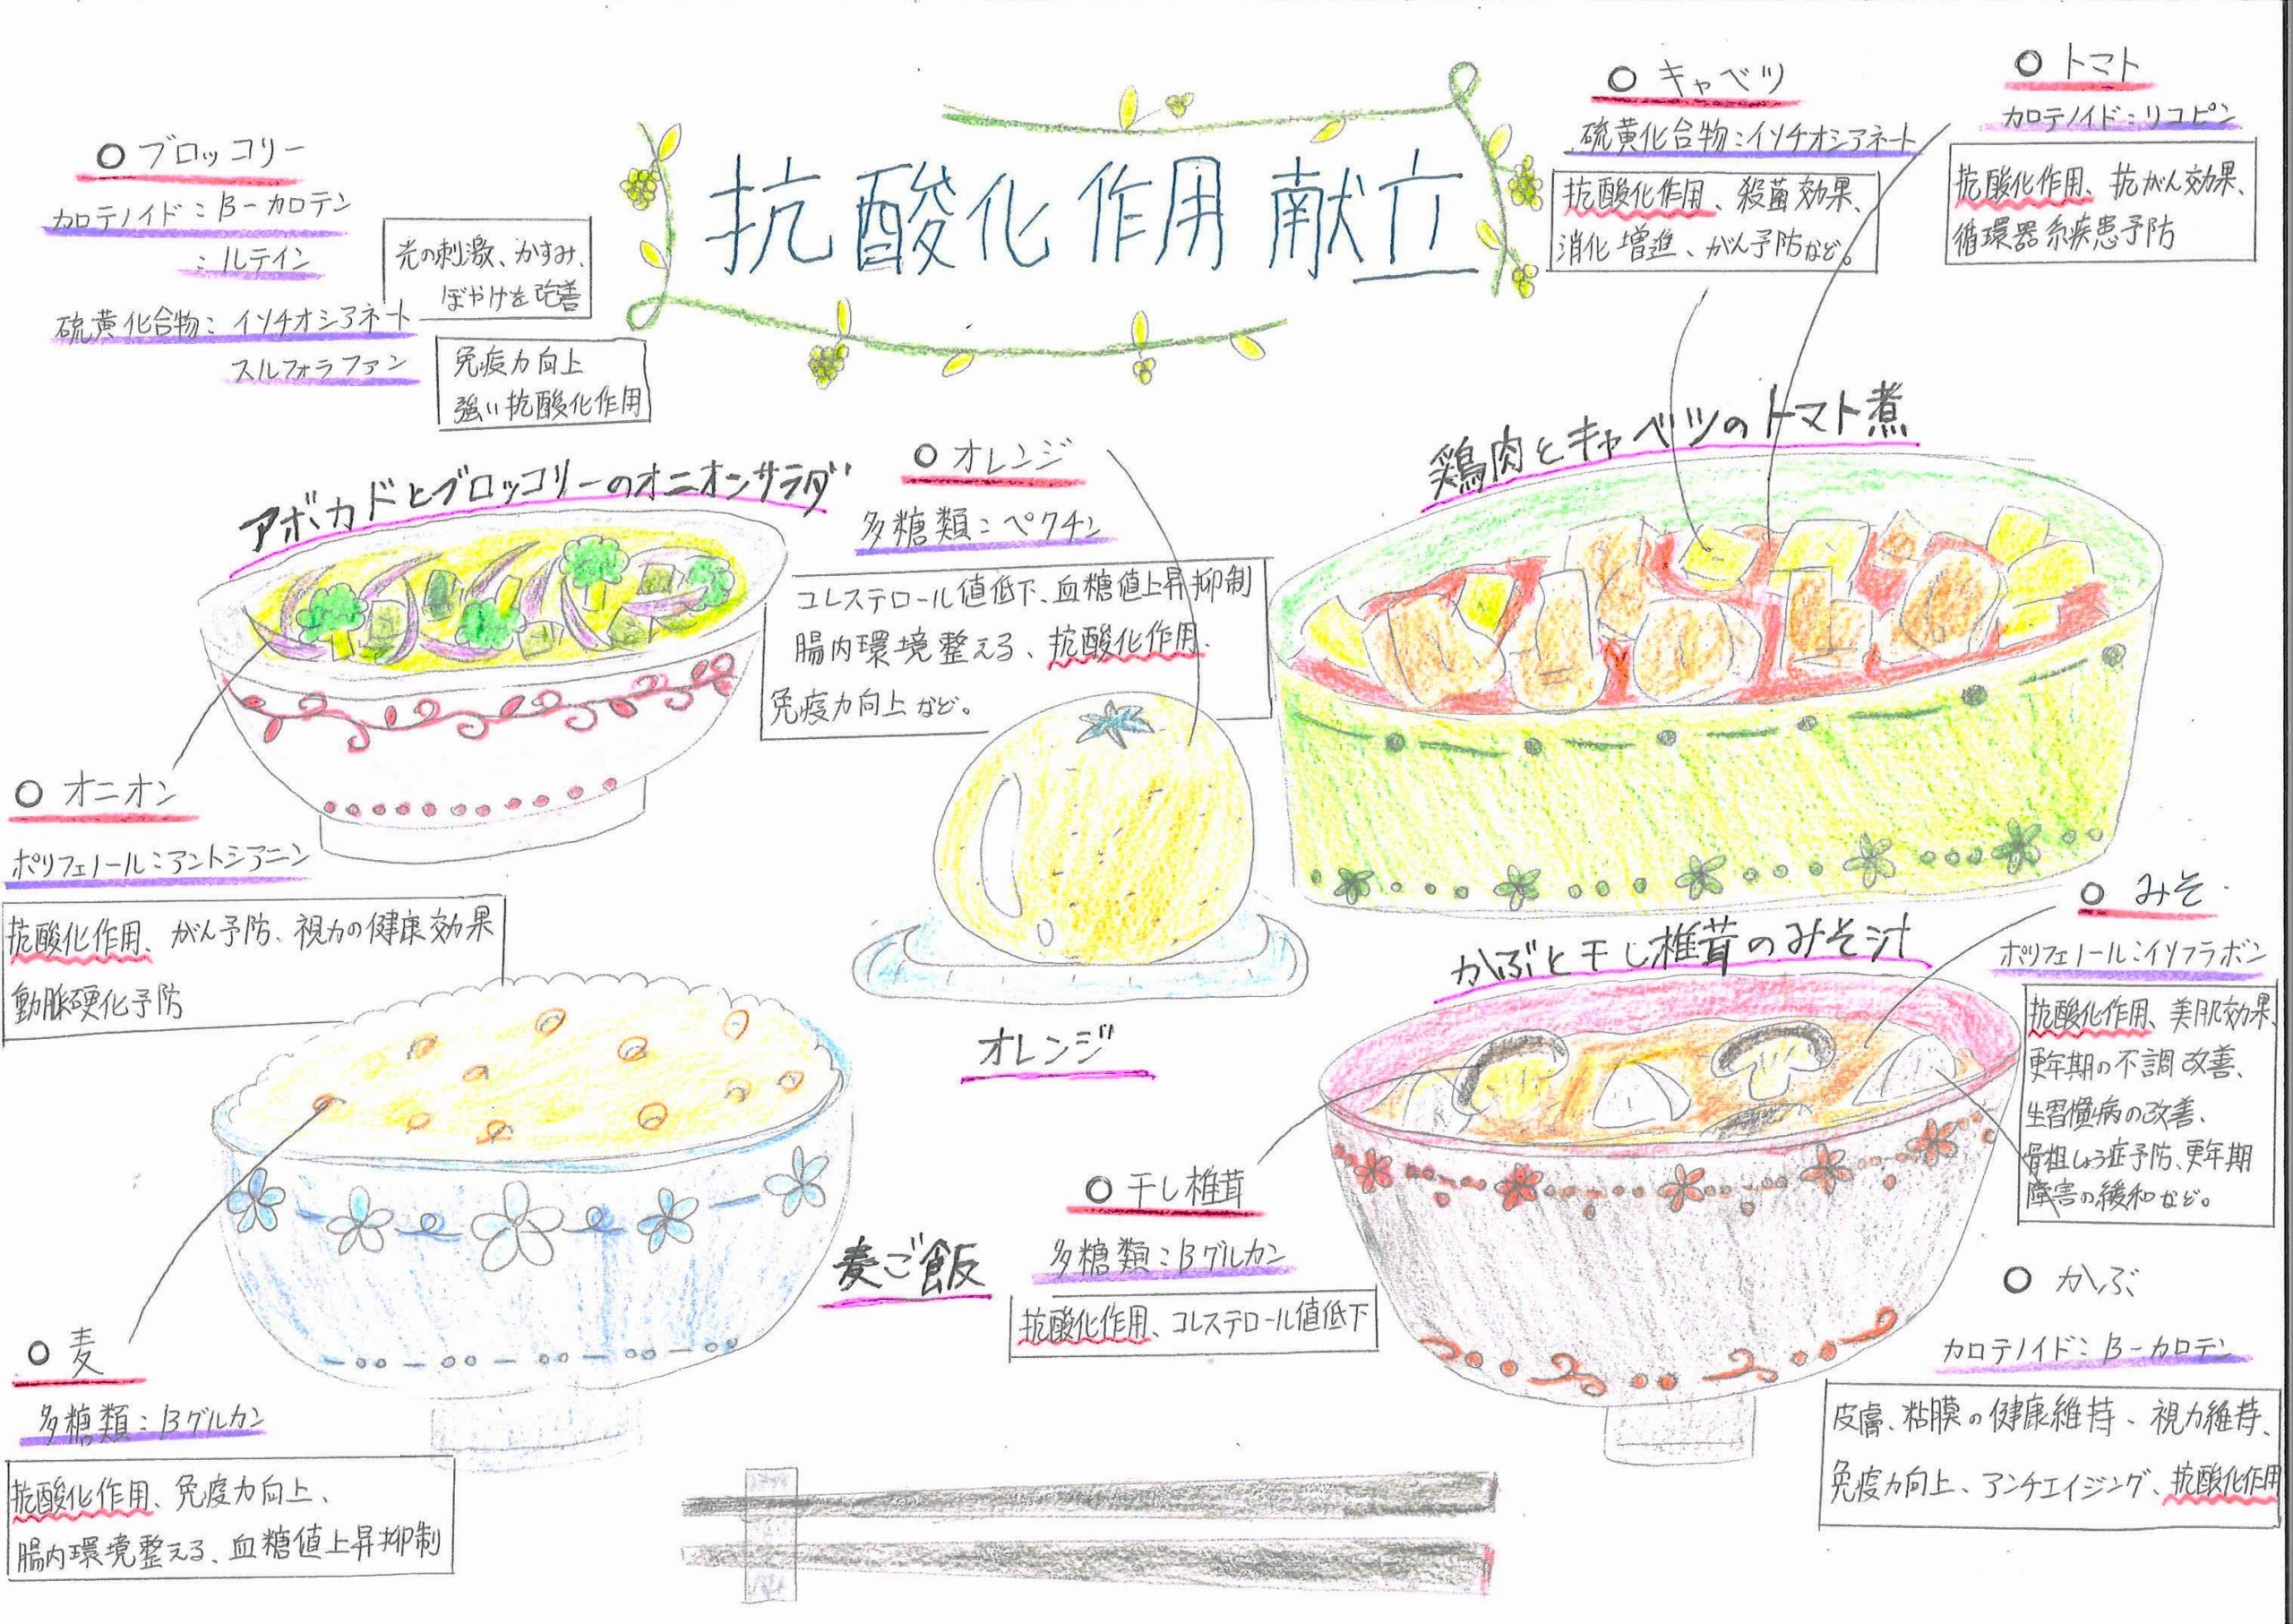 抗酸化作用献立
○ ブロッコリー
カロテノイド：β-カロテン
：ルテイン
光の刺激、かすみ、
ぼやけを改善
硫黄化合物：イソチオシアネート
スルフォラファン
免疫力向上
強い抗酸化作用
○ キャベツ
硫黄化合物：イソチオシアネート
抗酸化作用、殺菌効果、
消化増進、がん予防など。
○ トマト
カロテノイド：リコピン
抗酸化作用、抗がん効果、
循環器系疾患予防
アボカドとブロッコリーのオニオンサラダ
○ オレンジ
多糖類：ペクチン
コレステロール値低下、血糖値上昇抑制
腸内環境整える、抗酸化作用、
免疫力向上など。
鶏肉とキャベツのトマト煮
○ オニオン
ポリフェノール：アントシアニン
抗酸化作用、がん予防、視力の健康効果
動脈硬化予防
オレンジ
かぶと干し椎茸のみそ汁
○ みそ
ポリフェノール：イソフラボン
抗酸化作用、美肌効果、
更年期の不調改善、
生習慣病の改善、
骨粗しょう症予防、更年期
障害の緩和など。
麦ご飯
○ 干し椎茸
多糖類：βグルカン
抗酸化作用、コレステロール値低下
○ かぶ
カロテノイド：β-カロテン
皮膚、粘膜の健康維持、視力維持、
免疫力向上、アンチエイジング、抗酸化作用
○ 麦
多糖類：βグルカン
抗酸化作用、免疫力向上、
腸内環境整える、血糖値上昇抑制